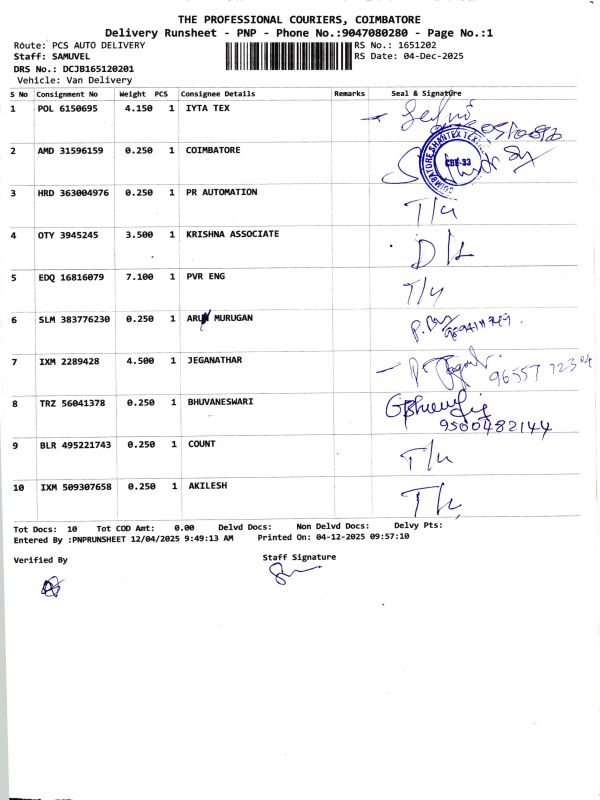 THE PROFESSIONAL COURIERS, COIMBATORE
Delivery Runsheet - PNP - Phone No.:9047080280 - Page No.:1
Route: PCS AUTO DELIVERY RS No.: 1651202
Staff: SAMUVEL RS Date: 04-Dec-2025
DRS No.: DCJB165120201
Vehicle: Van Delivery
S No Consignment No Weight PCS Consignee Details Remarks Seal & Signature
1 POL 6150695 4.150 1 IYTA TEX
2 AMD 31596159 0.250 1 COIMBATORE
CBE-33
3 HRD 363004976 0.250 1 PR AUTOMATION T/u
4 OTY 3945245 3.500 1 KRISHNA ASSOCIATE D/L
5 EDQ 16816079 7.100 1 PVR ENG T/u
6 SLM 383776230 0.250 1 ARUN MURUGAN
7 IXM 2289428 4.500 1 JEGANATHAR
8 TRZ 56041378 0.250 1 BHUVANESWARI
9500482144
9 BLR 495221743 0.250 1 COUNT T/u
10 IXM 509307658 0.250 1 AKILESH T/L
Tot Docs: 10 Tot COD Amt: 0.00 Delvd Docs: Non Delvd Docs: Delvy Pts:
Entered By :PNPRUNSHEET 12/04/2025 9:49:13 AM Printed On: 04-12-2025 09:57:10
Verified By Staff Signature